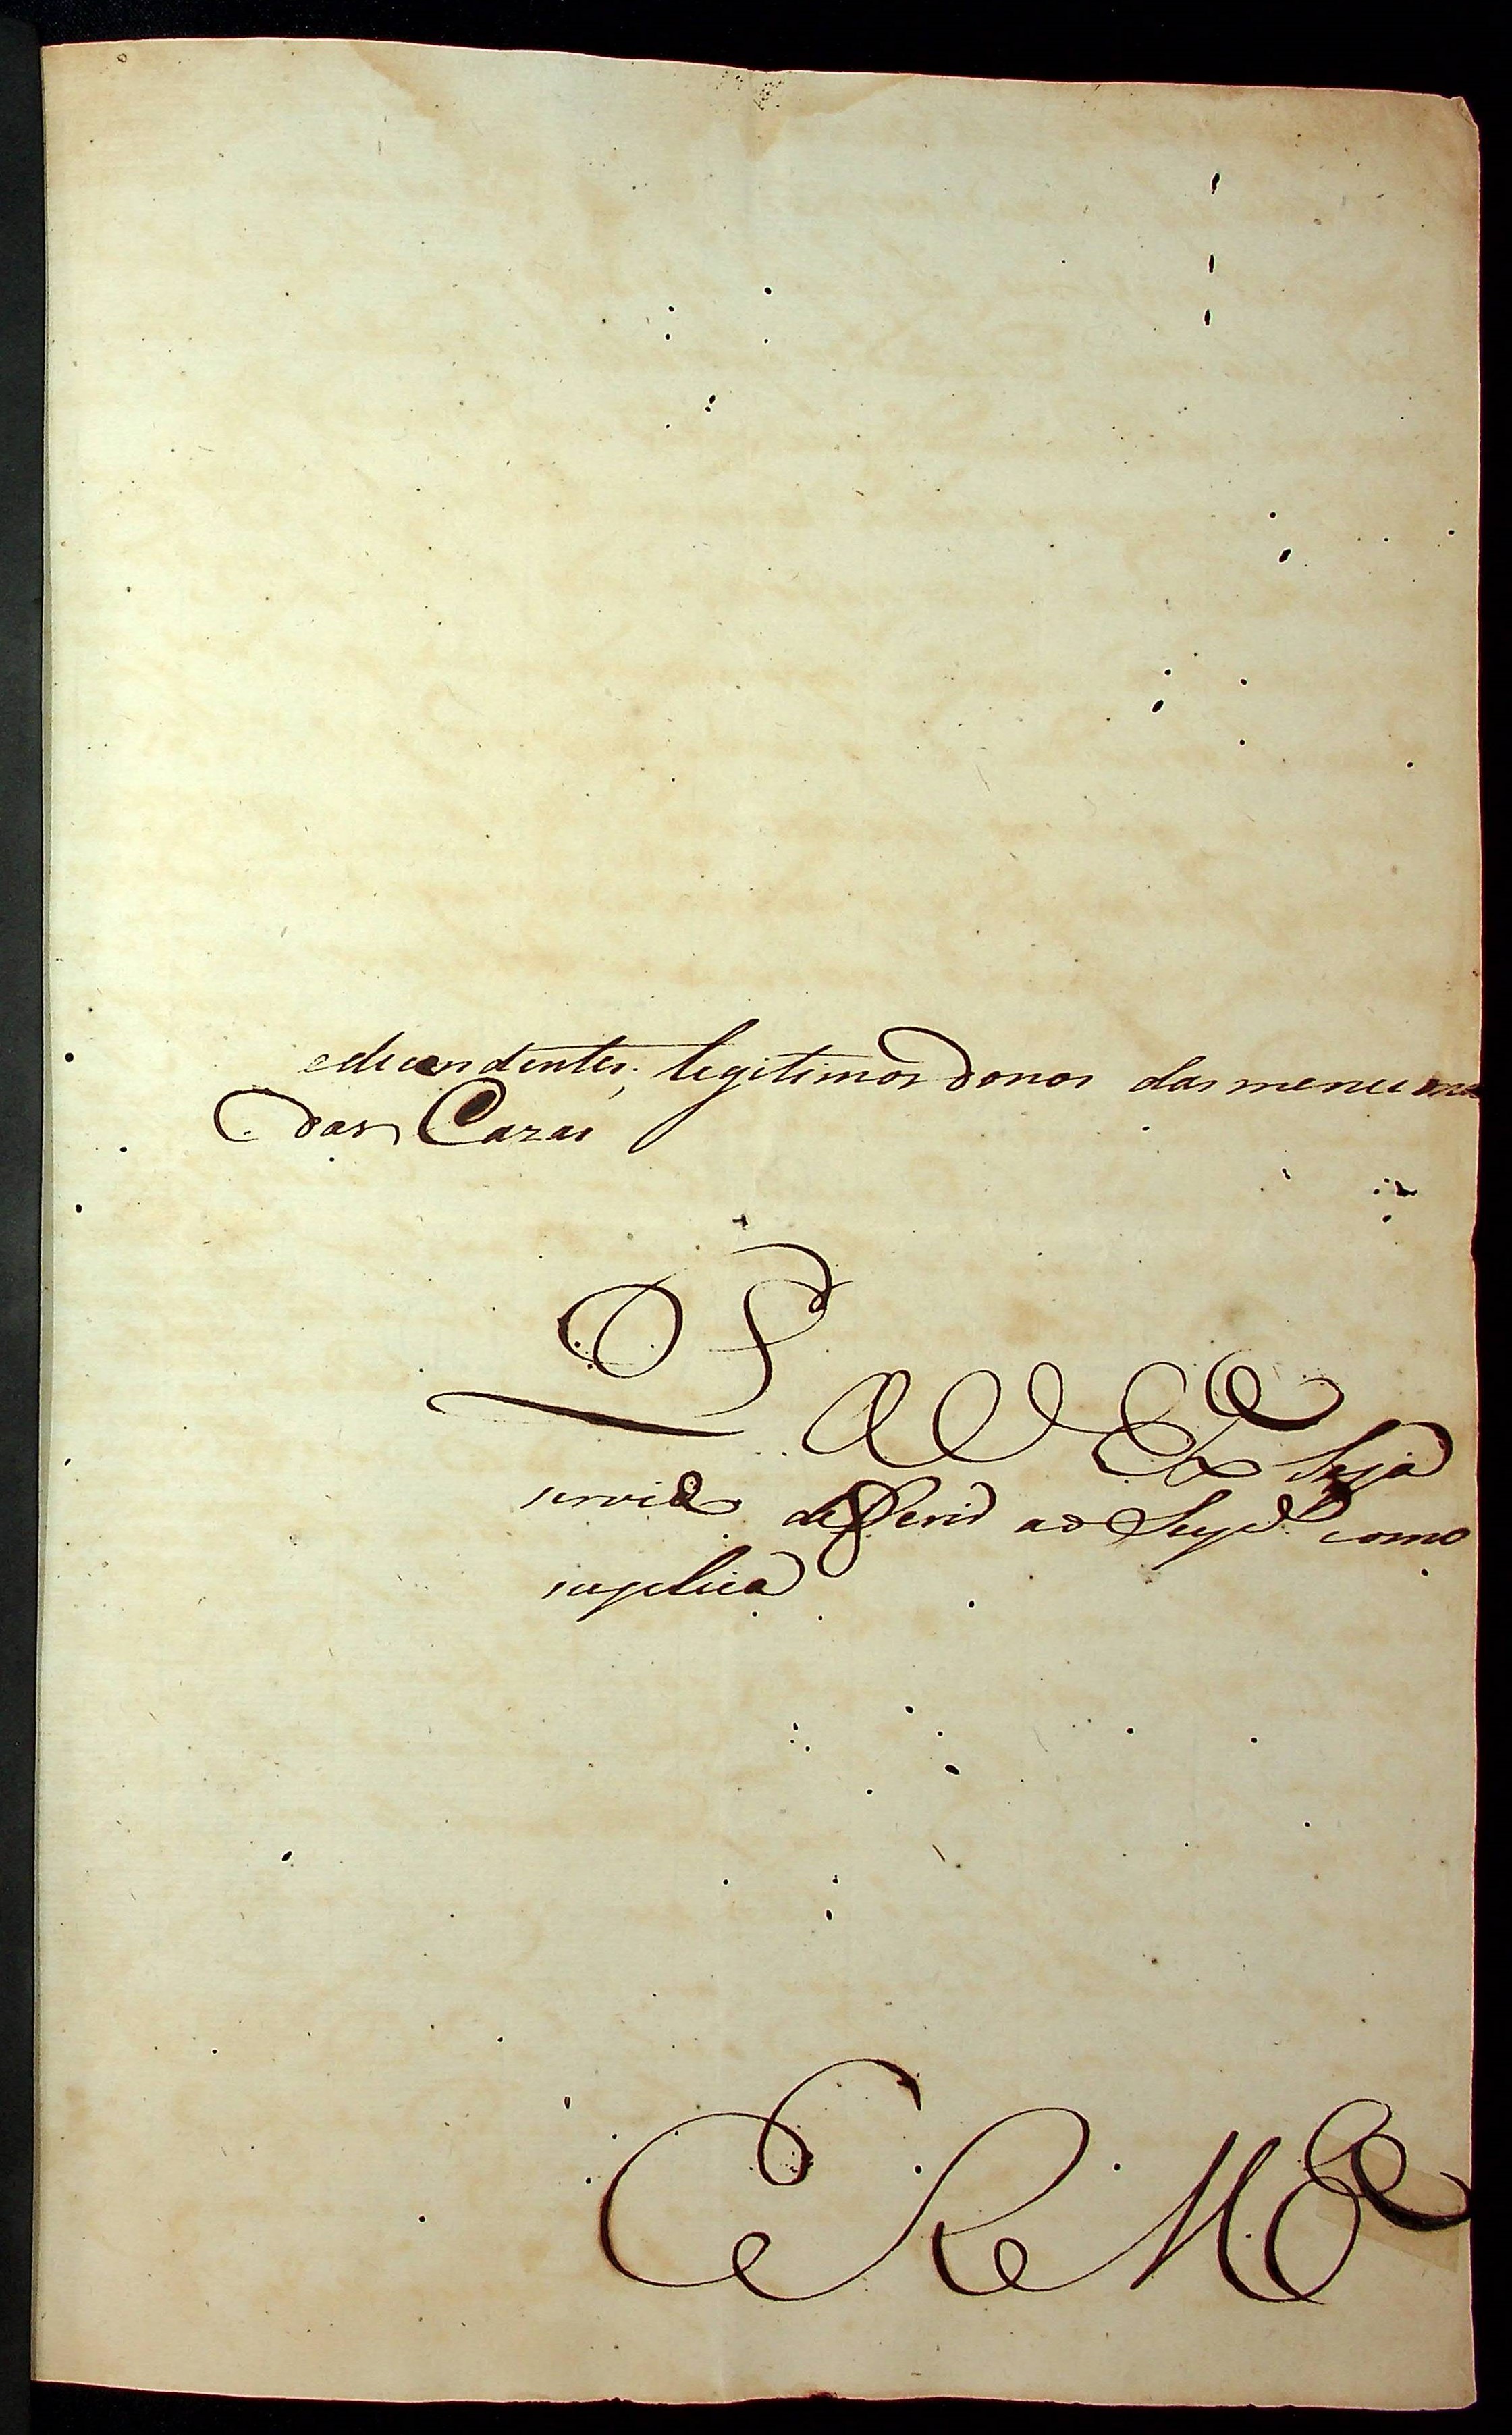 edecendentes; legitimos donos das menciona
das Cazas
P
a V Exª Seja
servido deferir ao Supe como
suplica
E R Mce